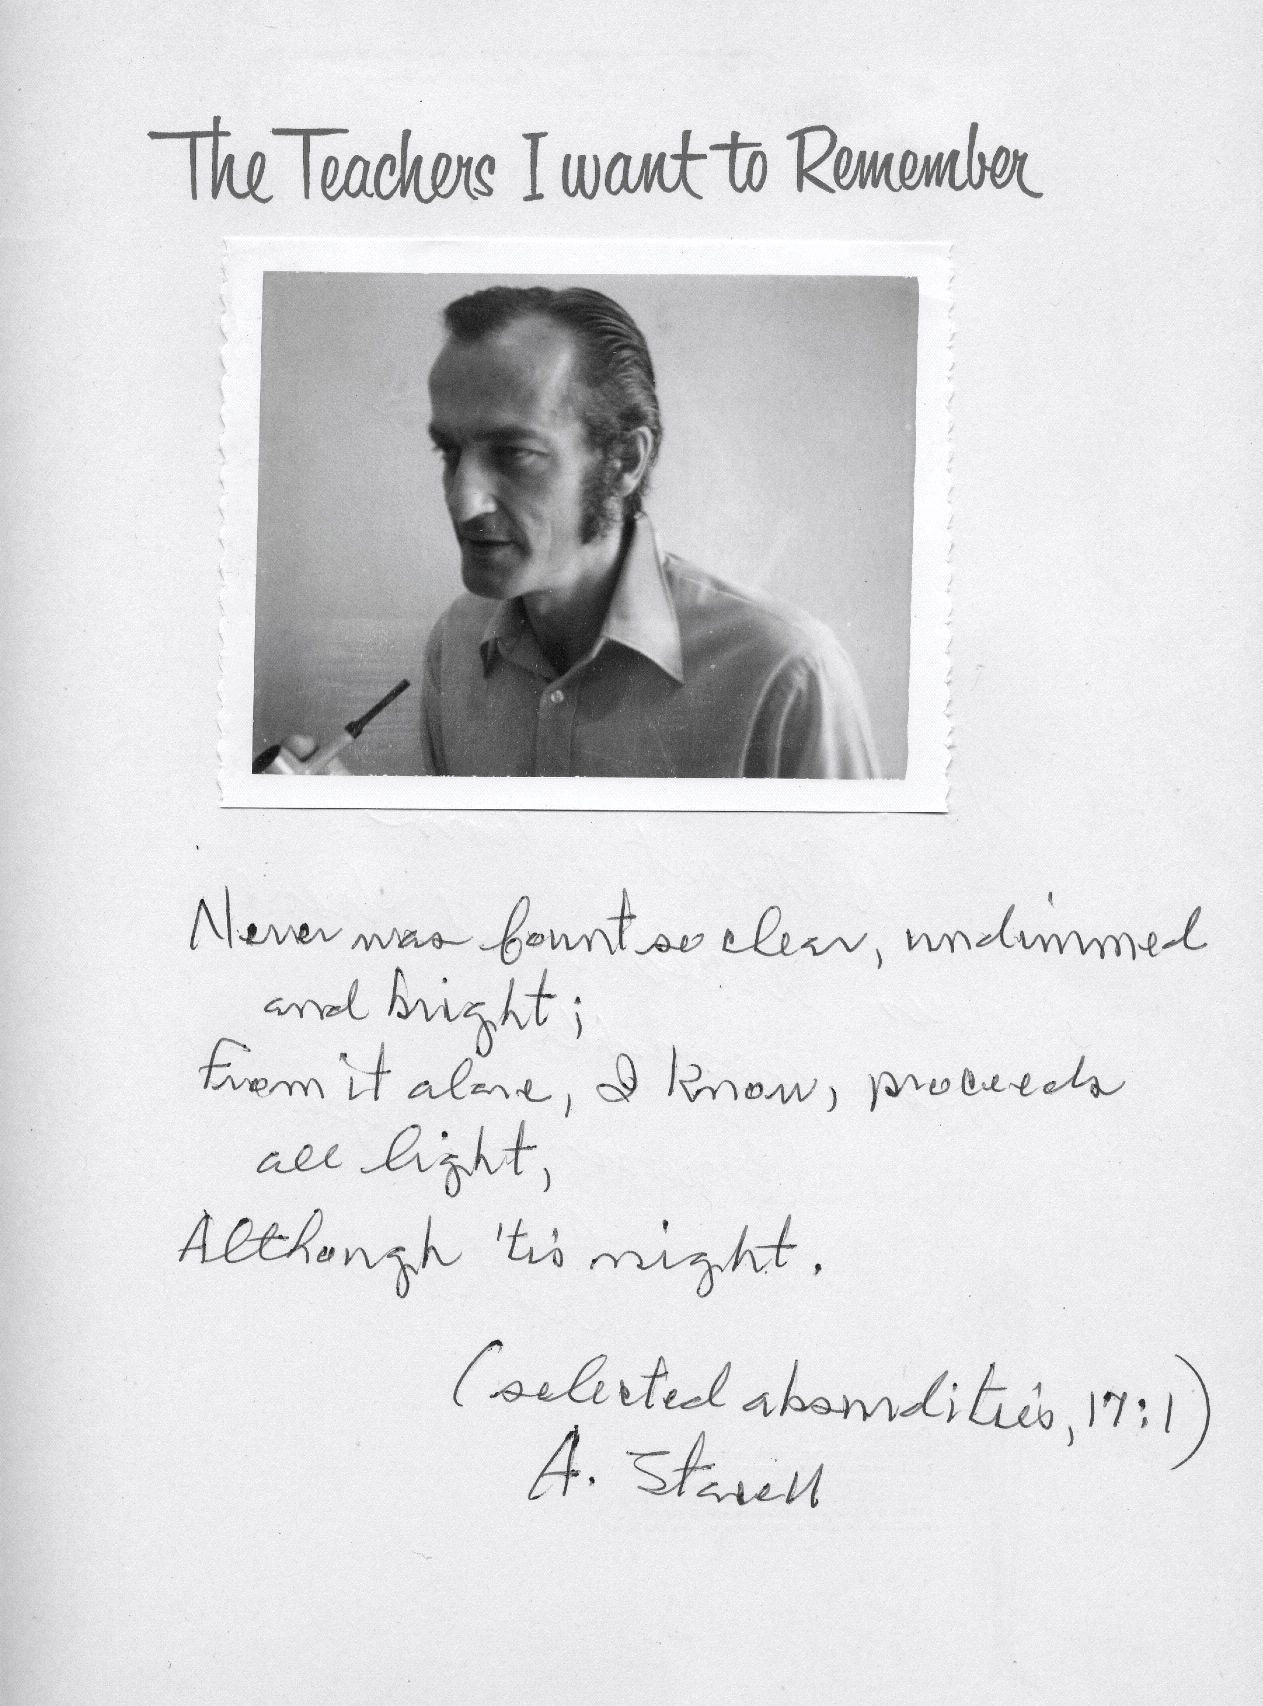 The Teachers I want to Remember
Never was fount so clear, undimmed
and bright;
From it alone, I know, proceeds
all light,
Although 'tis night.
(selected absurdities, 17:1)
A.